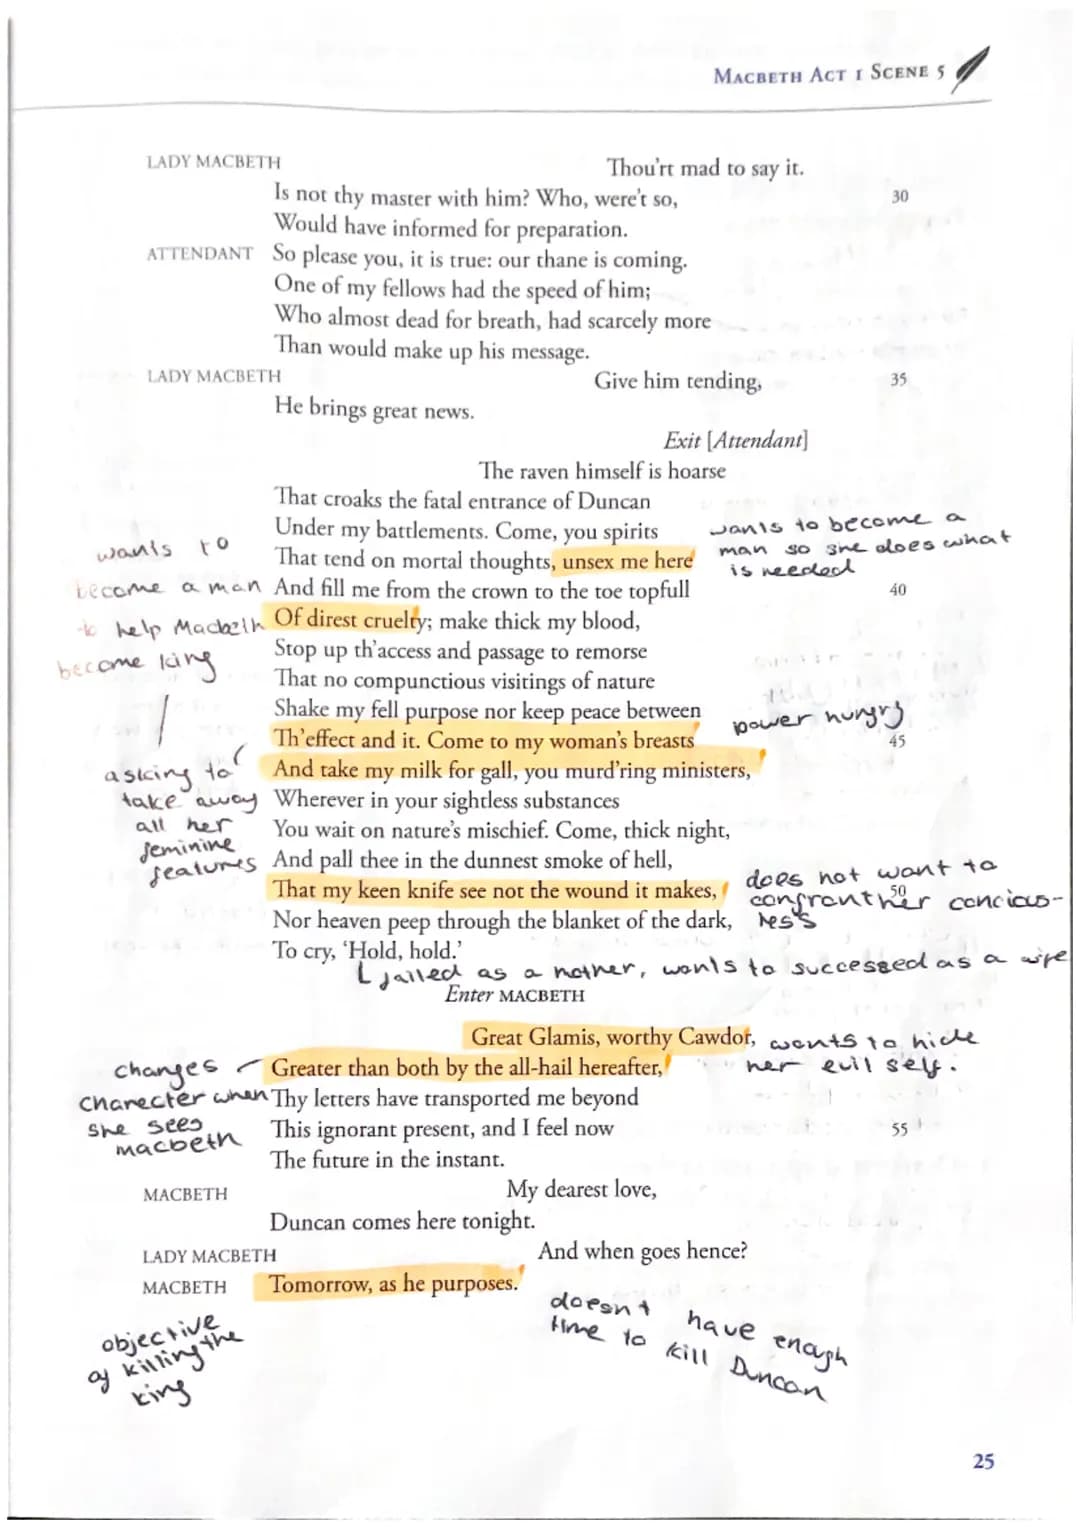 MACBETH ACT 1 SCENE 5
LADY MACBETH Thou'rt mad to say it.
Is not thy master with him? Who, were't so, 30
Would have informed for preparation.
ATTENDANT So please you, it is true: our thane is coming.
One of my fellows had the speed of him;
Who almost dead for breath, had scarcely more
Than would make up his message.
LADY MACBETH Give him tending, 35
He brings great news.
Exit [Attendant]
The raven himself is hoarse
That croaks the fatal entrance of Duncan
Under my battlements. Come, you spirits
That tend on mortal thoughts, unsex me here
And fill me from the crown to the toe topfull 40
Of direst cruelty; make thick my blood,
Stop up th'access and passage to remorse
That no compunctious visitings of nature
Shake my fell purpose nor keep peace between
Th'effect and it. Come to my woman's breasts 45
And take my milk for gall, you murd'ring ministers,
Wherever in your sightless substances
You wait on nature's mischief. Come, thick night,
And pall thee in the dunnest smoke of hell,
That my keen knife see not the wound it makes, 50
Nor heaven peep through the blanket of the dark,
To cry, 'Hold, hold.'
Enter MACBETH
Great Glamis, worthy Cawdor,
Greater than both by the all-hail hereafter,
Thy letters have transported me beyond
This ignorant present, and I feel now 55
The future in the instant.
MACBETH My dearest love,
Duncan comes here tonight.
LADY MACBETH And when goes hence?
MACBETH Tomorrow, as he purposes.
wants to
become a man
to help Macbeth
become king
asking to
take away
all her
feminine
features
changes
charecter when
she sees
macbeth
objective
of killing the
king
wants to become a
man so she does what
is needed
power hungry
does not want to
confront her concious-
ness
failed as a mother, wants to successed as a wife
wants to hide
her evil self.
doesnt have enough
time to kill Duncan
25